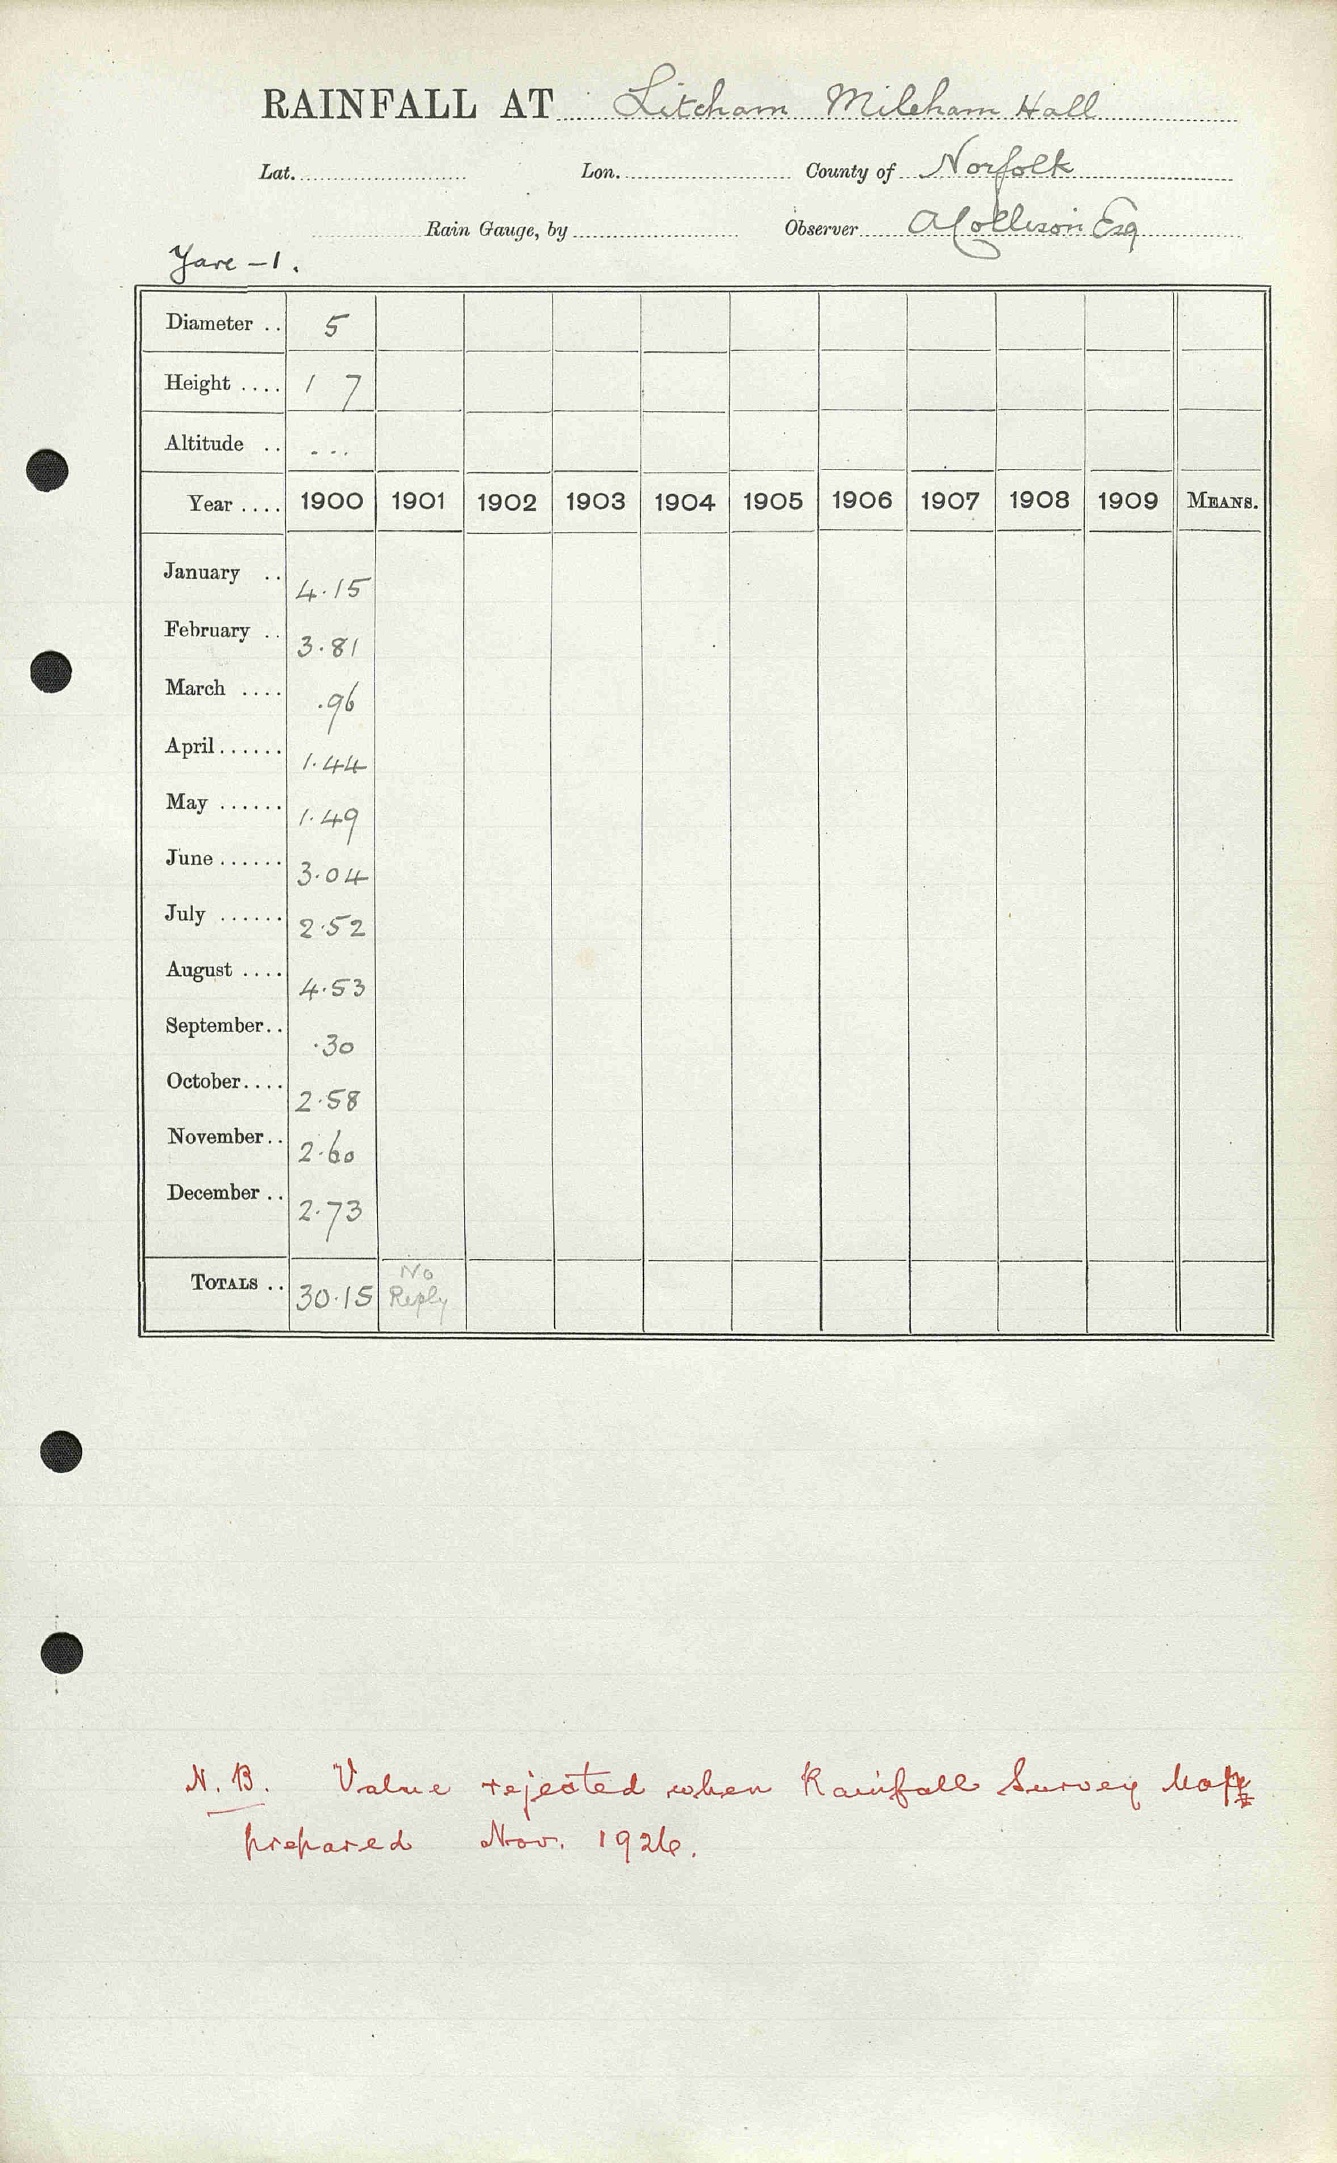 RAINFALL AT Litcham Mileham Hall
Lat. Lon. County of Norfolk
Rain Gauge, by Observer A Collison Esq
Yare – 1.
Diameter .. 5
Height .... 1 7
Altitude .. ...
Year .... 1900 1901 1902 1903 1904 1905 1906 1907 1908 1909 MEANS.
January .. 4.15
February .. 3.81
March .... .96
April ...... 1.44
May ...... 1.49
June ...... 3.04
July ...... 2.52
August .... 4.53
September.. .30
October.... 2.58
November.. 2.60
December .. 2.73
TOTALS .. 30.15 No Reply
N.B. Value rejected when Rainfall Survey Maps
prepared Nov. 1926.